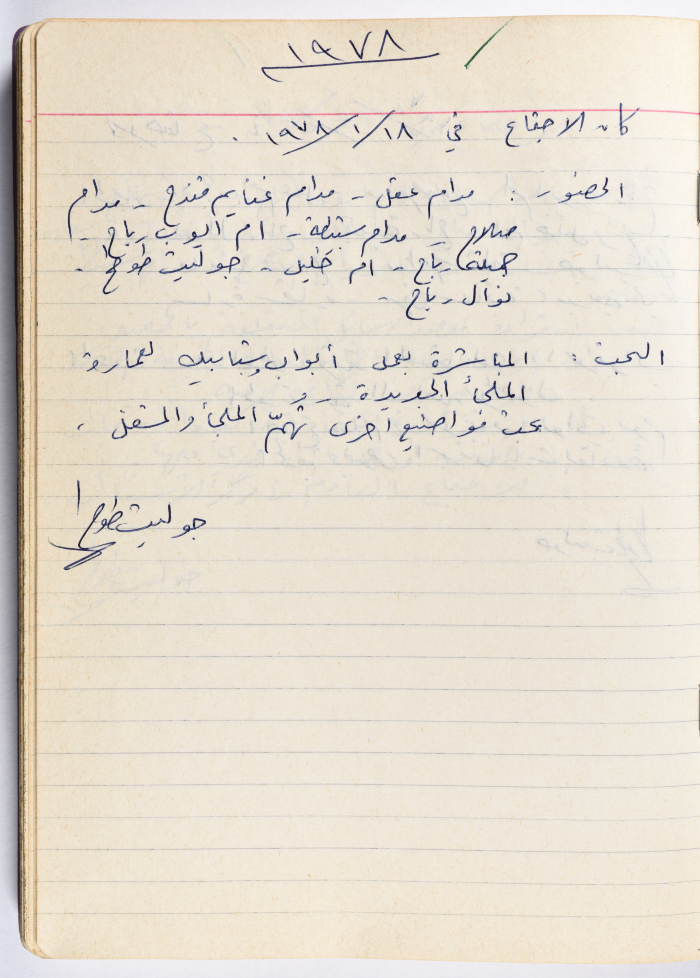 ١٩٧٨
كان الاجتماع في ١٨/١/١٩٧٨ .
الحضور : مدام عقل - مدام غنايم قندح - مدام
صلاح - مدام سبتطة - ام ايوب رباح -
جميلة رباح - ام خليل - جوليت طوطح -
نوال رباح -
البحث : المباشرة لعمل أبواب وشبابيك لعمارة
الملجأ الجديدة - و
بحث مواضيع أخرى تهمّ الملجأ والمشغل .
جوليت طوطح